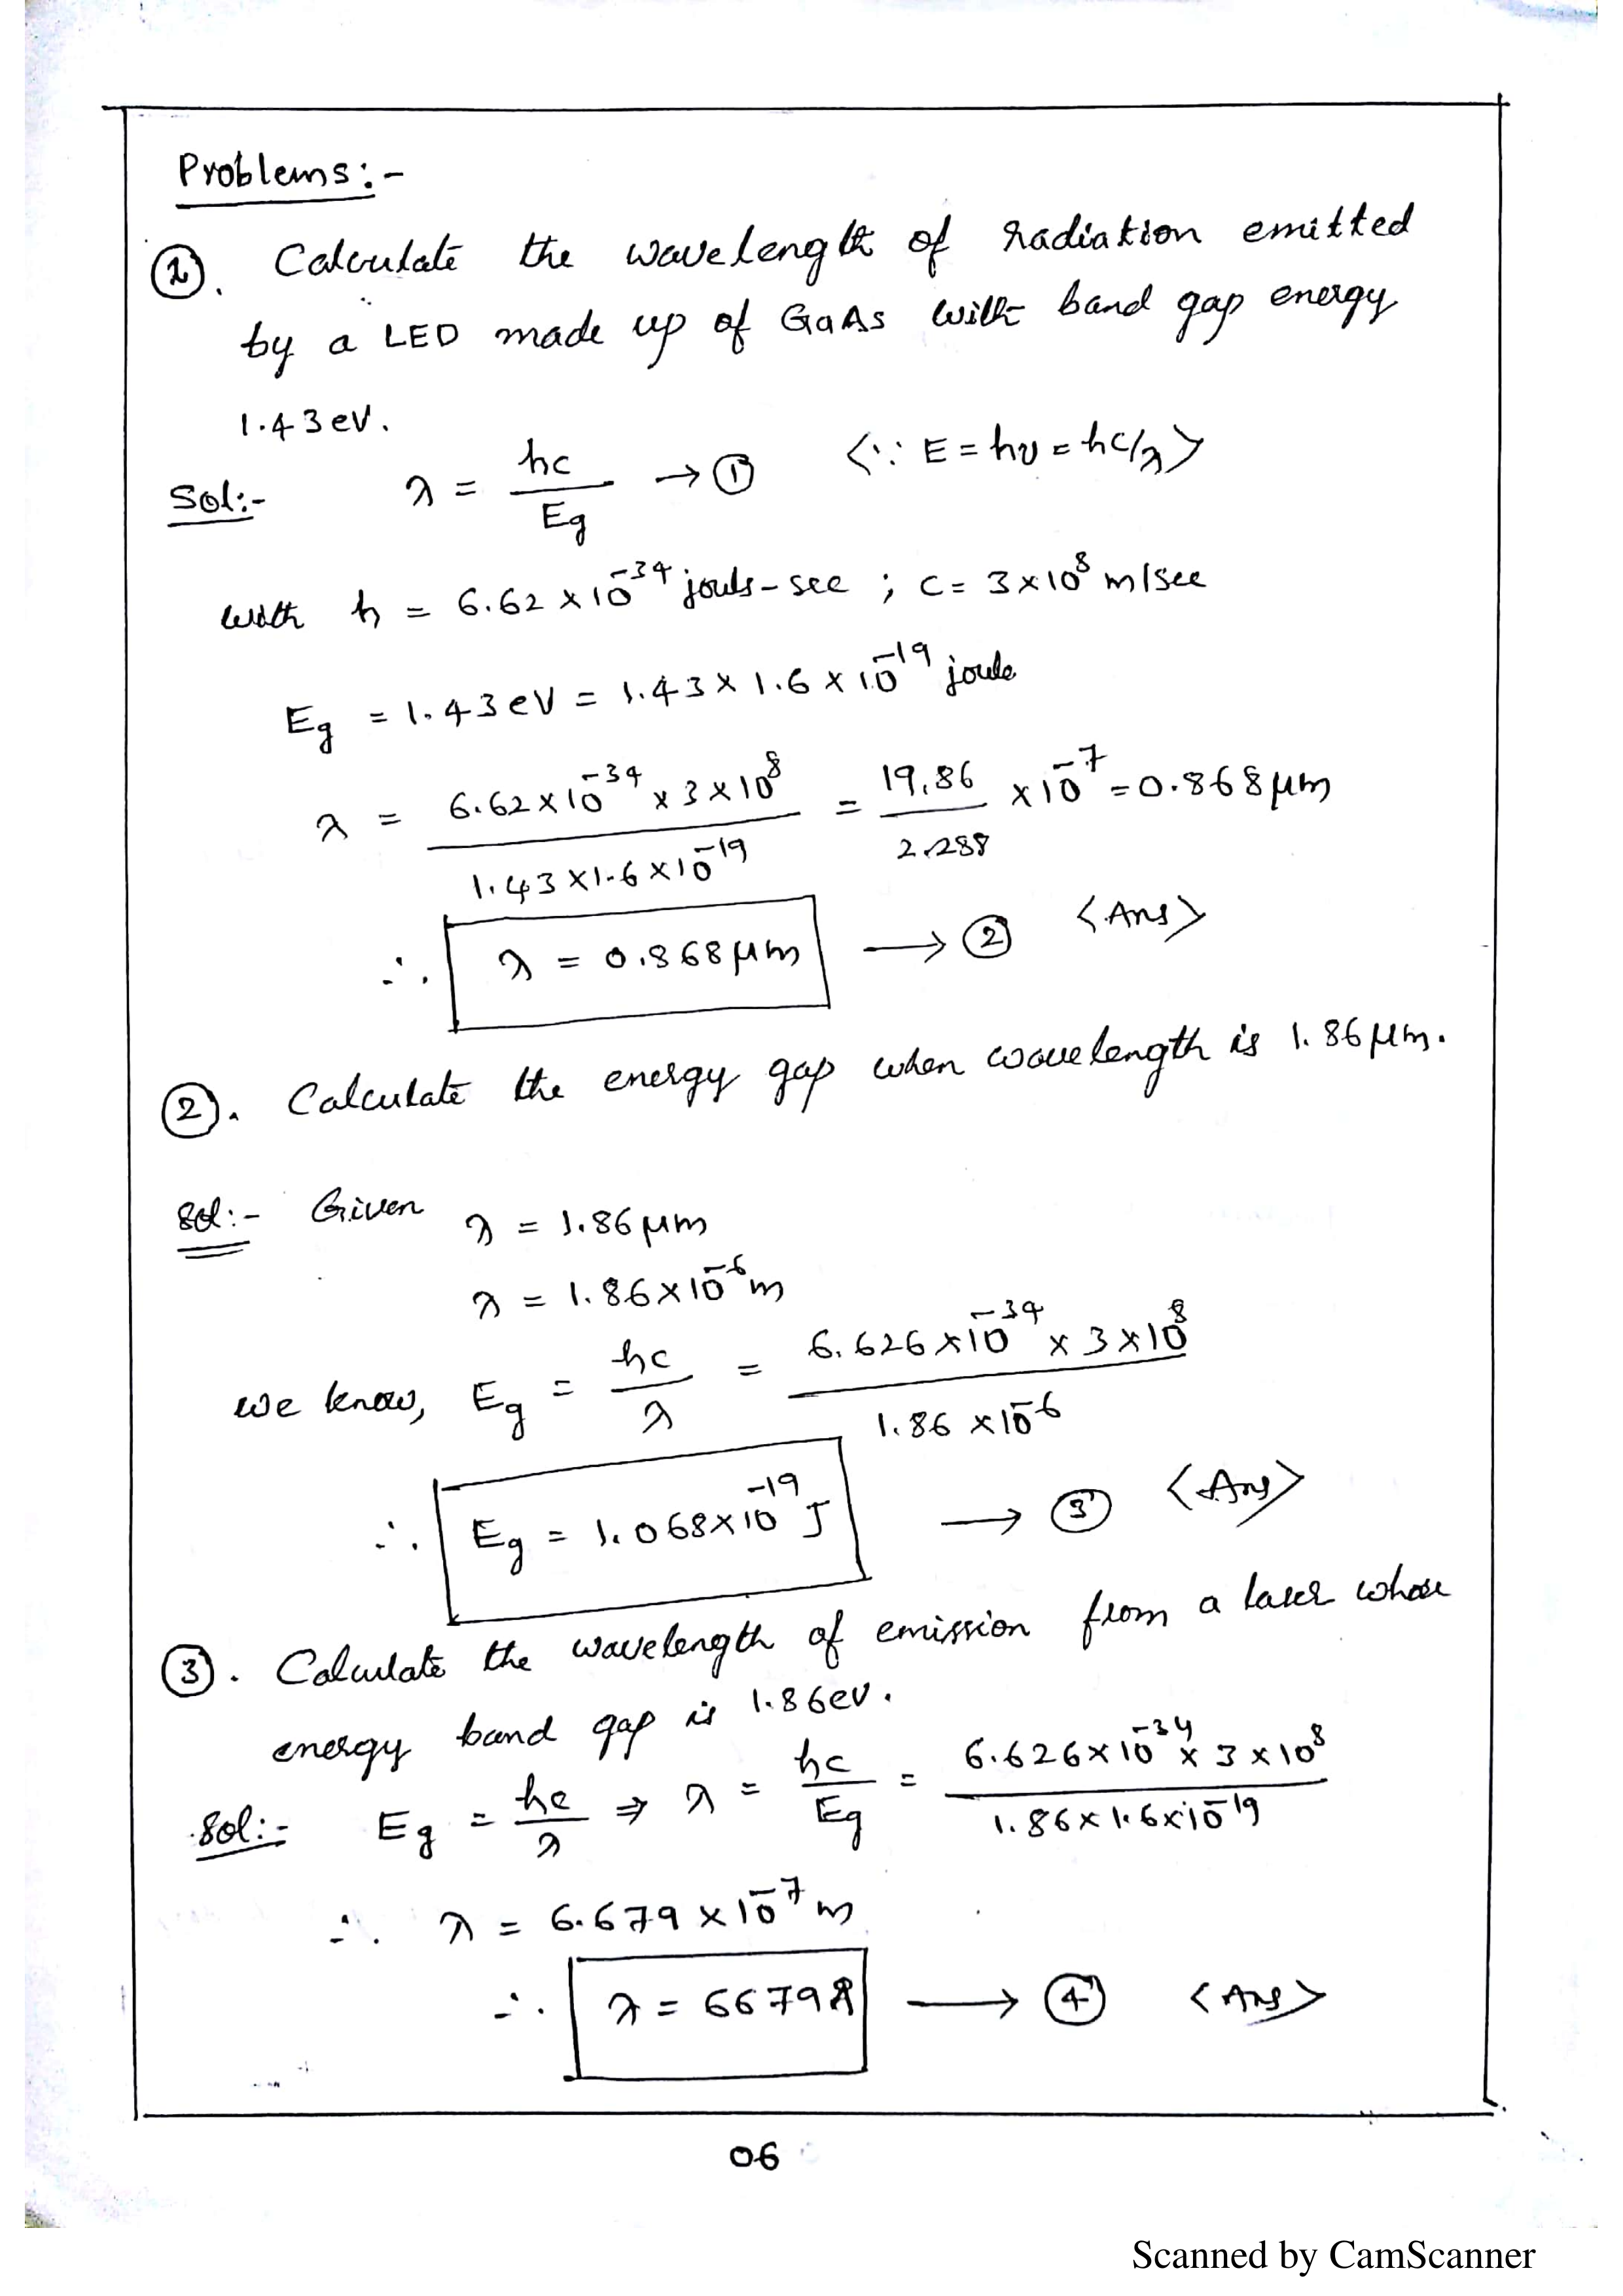 Problems:-
①. Calculate the wavelength of radiation emitted
by a LED made up of GaAs with band gap energy
1.43eV.
Sol:- λ = hc/Eg → ① <∵ E = hν = hc/λ>
with h = 6.62 × 10^-34 jouls-sec ; c = 3×10^8 m/sec
Eg = 1.43eV = 1.43 × 1.6 × 10^-19 joule
λ = (6.62×10^-34 × 3×10^8)/(1.43×1.6×10^-19) = 19.86/2.288 ×10^-7 = 0.868μm
∴ λ = 0.868μm → ② <Ans>
②. Calculate the energy gap when wavelength is 1.86μm.
Sol:- Given λ = 1.86μm
λ = 1.86×10^-6 m
we know, Eg = hc/λ = (6.626×10^-34 × 3×10^8)/(1.86×10^-6)
∴ Eg = 1.068×10^-19 J → ③ <Ans>
③. Calculate the wavelength of emission from a laser whose
energy band gap is 1.86ev.
Sol:- Eg = hc/λ ⇒ λ = hc/Eg = (6.626×10^-34 × 3×10^8)/(1.86×1.6×10^-19)
∴ λ = 6.679×10^-7 m
∴ λ = 6679Å → ④ <Ans>
06
Scanned by CamScanner